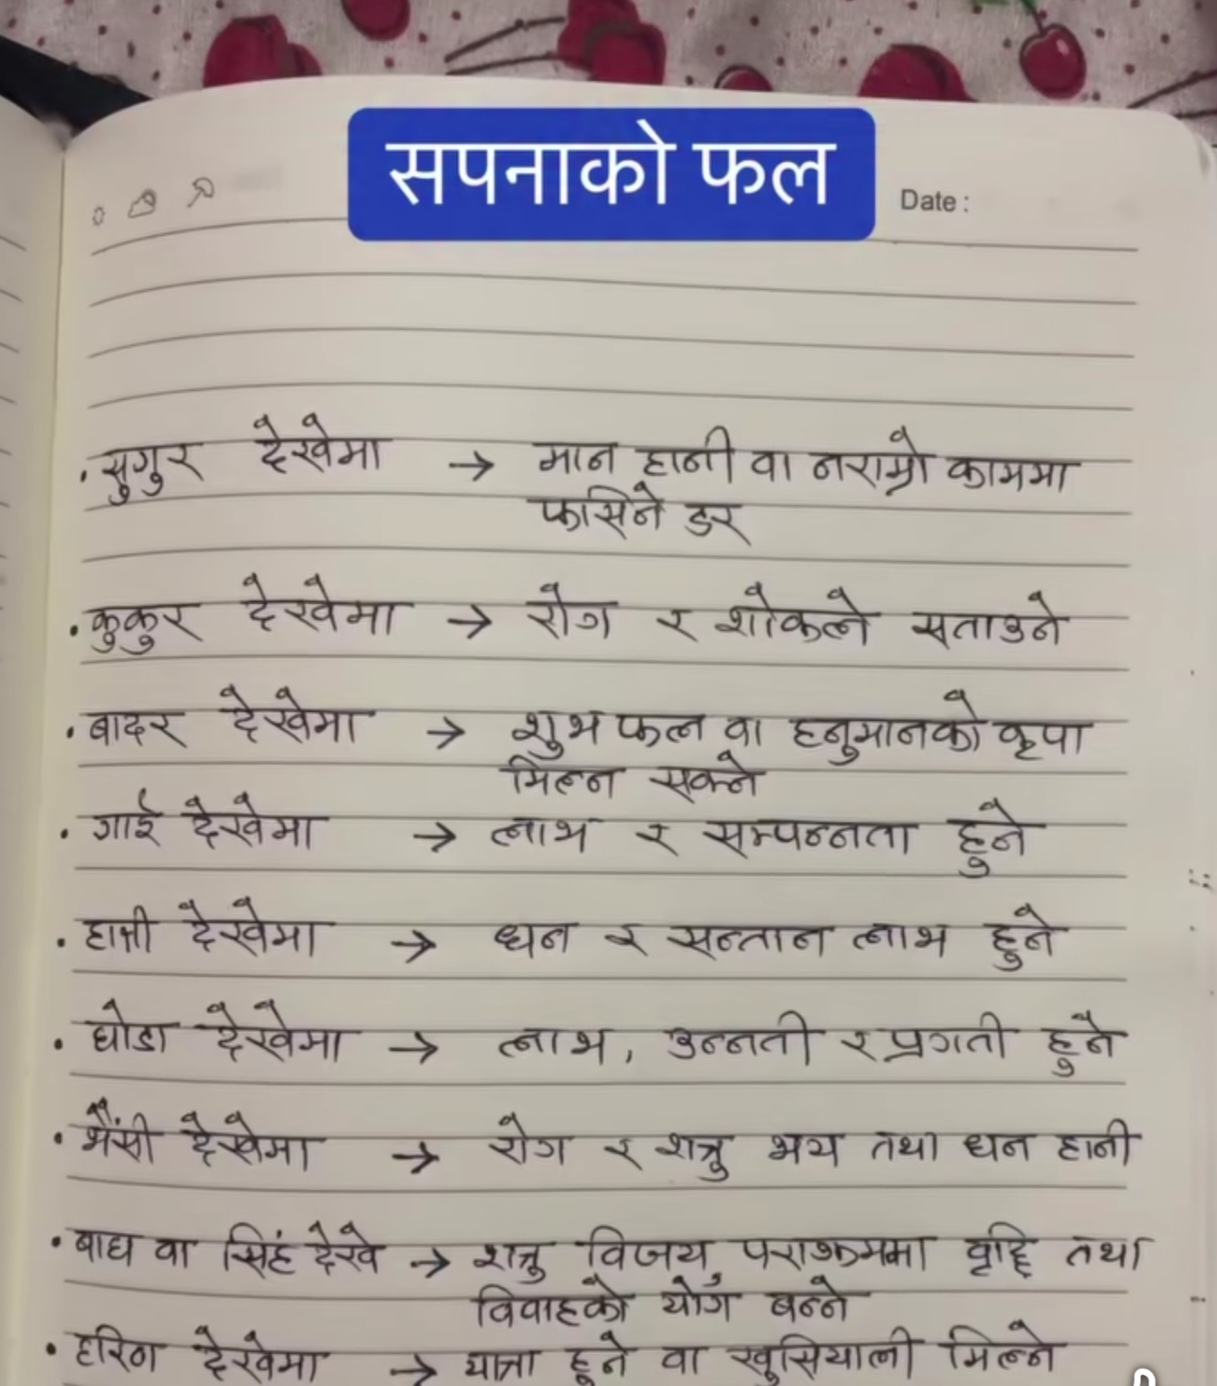 सपनाको फल
Date :
. सुगुर देखेमा → मान हानी वा नराम्रो काममा
फासिने डर
. कुकुर देखेमा → रोग र शोकले सताउने
. बादर देखेमा → शुभ फल वा हनुमानको कृपा
मिल्न सक्ने
. गाई देखेमा → लाभ र सम्पन्नता हुने
. हात्ती देखेमा → धन र सन्तान लाभ हुने
. घोडा देखेमा → लाभ, उन्नती र प्रगती हुने
. भैंसी देखेमा → रोग र शत्रु भय तथा धन हानी
. बाघ वा सिहं देखे → शत्रु विजय, पराक्रममा वृद्दि तथा
विवाहको योग बन्ने
. हरिण देखेमा → यात्रा हुने वा खुसियाली मिल्ने